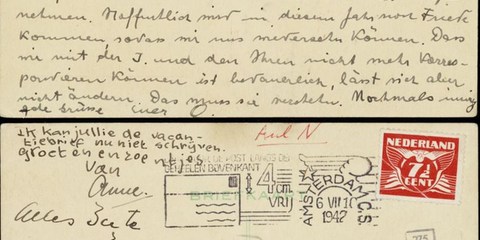 nehmen. Hoffentlich wird in diesem Jahr noch Friede
kommen sodass wir uns wiedersehen können. Dass
wir mit der I. und den Ihren nicht mehr korres-
pondieren können ist bedauerlich, lässt sich aber
nicht ändern. Das muss sie verstehen. Nochmals innig
Grüsse Euer
Ik kan jullie de vacan-
tiebrief nu niet schrijven.
groeten en zoentjes
van
Anne.
Alles Gute
POST LANGS DE
BOVENKANT
4
cM.
VRIJ
BRIEFKA
AMSTERDAM
6 VII 10
1942
NEDERLAND
7½
CENT